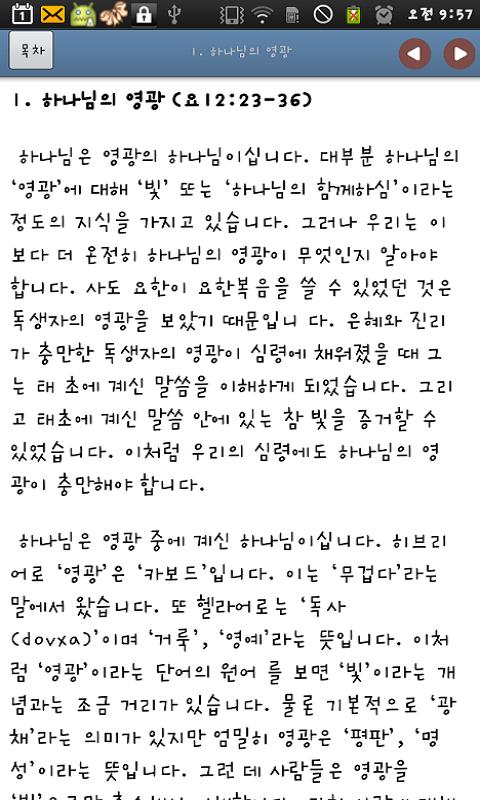 오전 9:57
목차
1. 하나님의 영광
1. 하나님의 영광 (요12:23-36)
하나님은 영광의 하나님이십니다. 대부분 하나님의
‘영광’에 대해 ‘빛’ 또는 ‘하나님의 함께하심’이라는
정도의 지식을 가지고 있습니다. 그러나 우리는 이
보다 더 온전히 하나님의 영광이 무엇인지 알아야
합니다. 사도 요한이 요한복음을 쓸 수 있었던 것은
독생자의 영광을 보았기 때문입니 다. 은혜와 진리
가 충만한 독생자의 영광이 심령에 채워졌을 때 그
는 태 초에 계신 말씀을 이해하게 되었습니다. 그리
고 태초에 계신 말씀 안에 있는 참 빛을 증거할 수
있었습니다. 이처럼 우리의 심령에도 하나님의 영
광이 충만해야 합니다.
하나님은 영광 중에 계신 하나님이십니다. 히브리
어로 ‘영광’은 ‘카보드’입니다. 이는 ‘무겁다’라는
말에서 왔습니다. 또 헬라어로는 ‘독사
(dovxa)’이며 ‘거룩’, ‘영예’라는 뜻입니다. 이처
럼 ‘영광’이라는 단어의 원어 를 보면 ‘빛’이라는 개
념과는 조금 거리가 있습니다. 물론 기본적으로 ‘광
채’라는 의미가 있지만 엄밀히 영광은 ‘평판’, ‘명
성’이라는 뜻입니다. 그런 데 사람들은 영광을